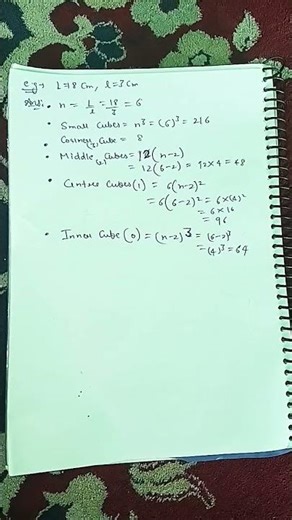 e.g:- L=18 Cm, l=3 Cm
Sol:- n = L/l = 18/3 = 6
• Small Cubes = n³ = (6)³ = 216
Corner(3) Cube = 8
• Middle(2) Cubes = 12(n-2)
= 12(6-2) = 12×4 = 48
• Centre Cubes(1) = 6(n-2)²
= 6(6-2)² = 6×(4)²
= 6×16
= 96
• Inner Cube (0) = (n-2)³ = (6-2)³
= (4)³ = 64